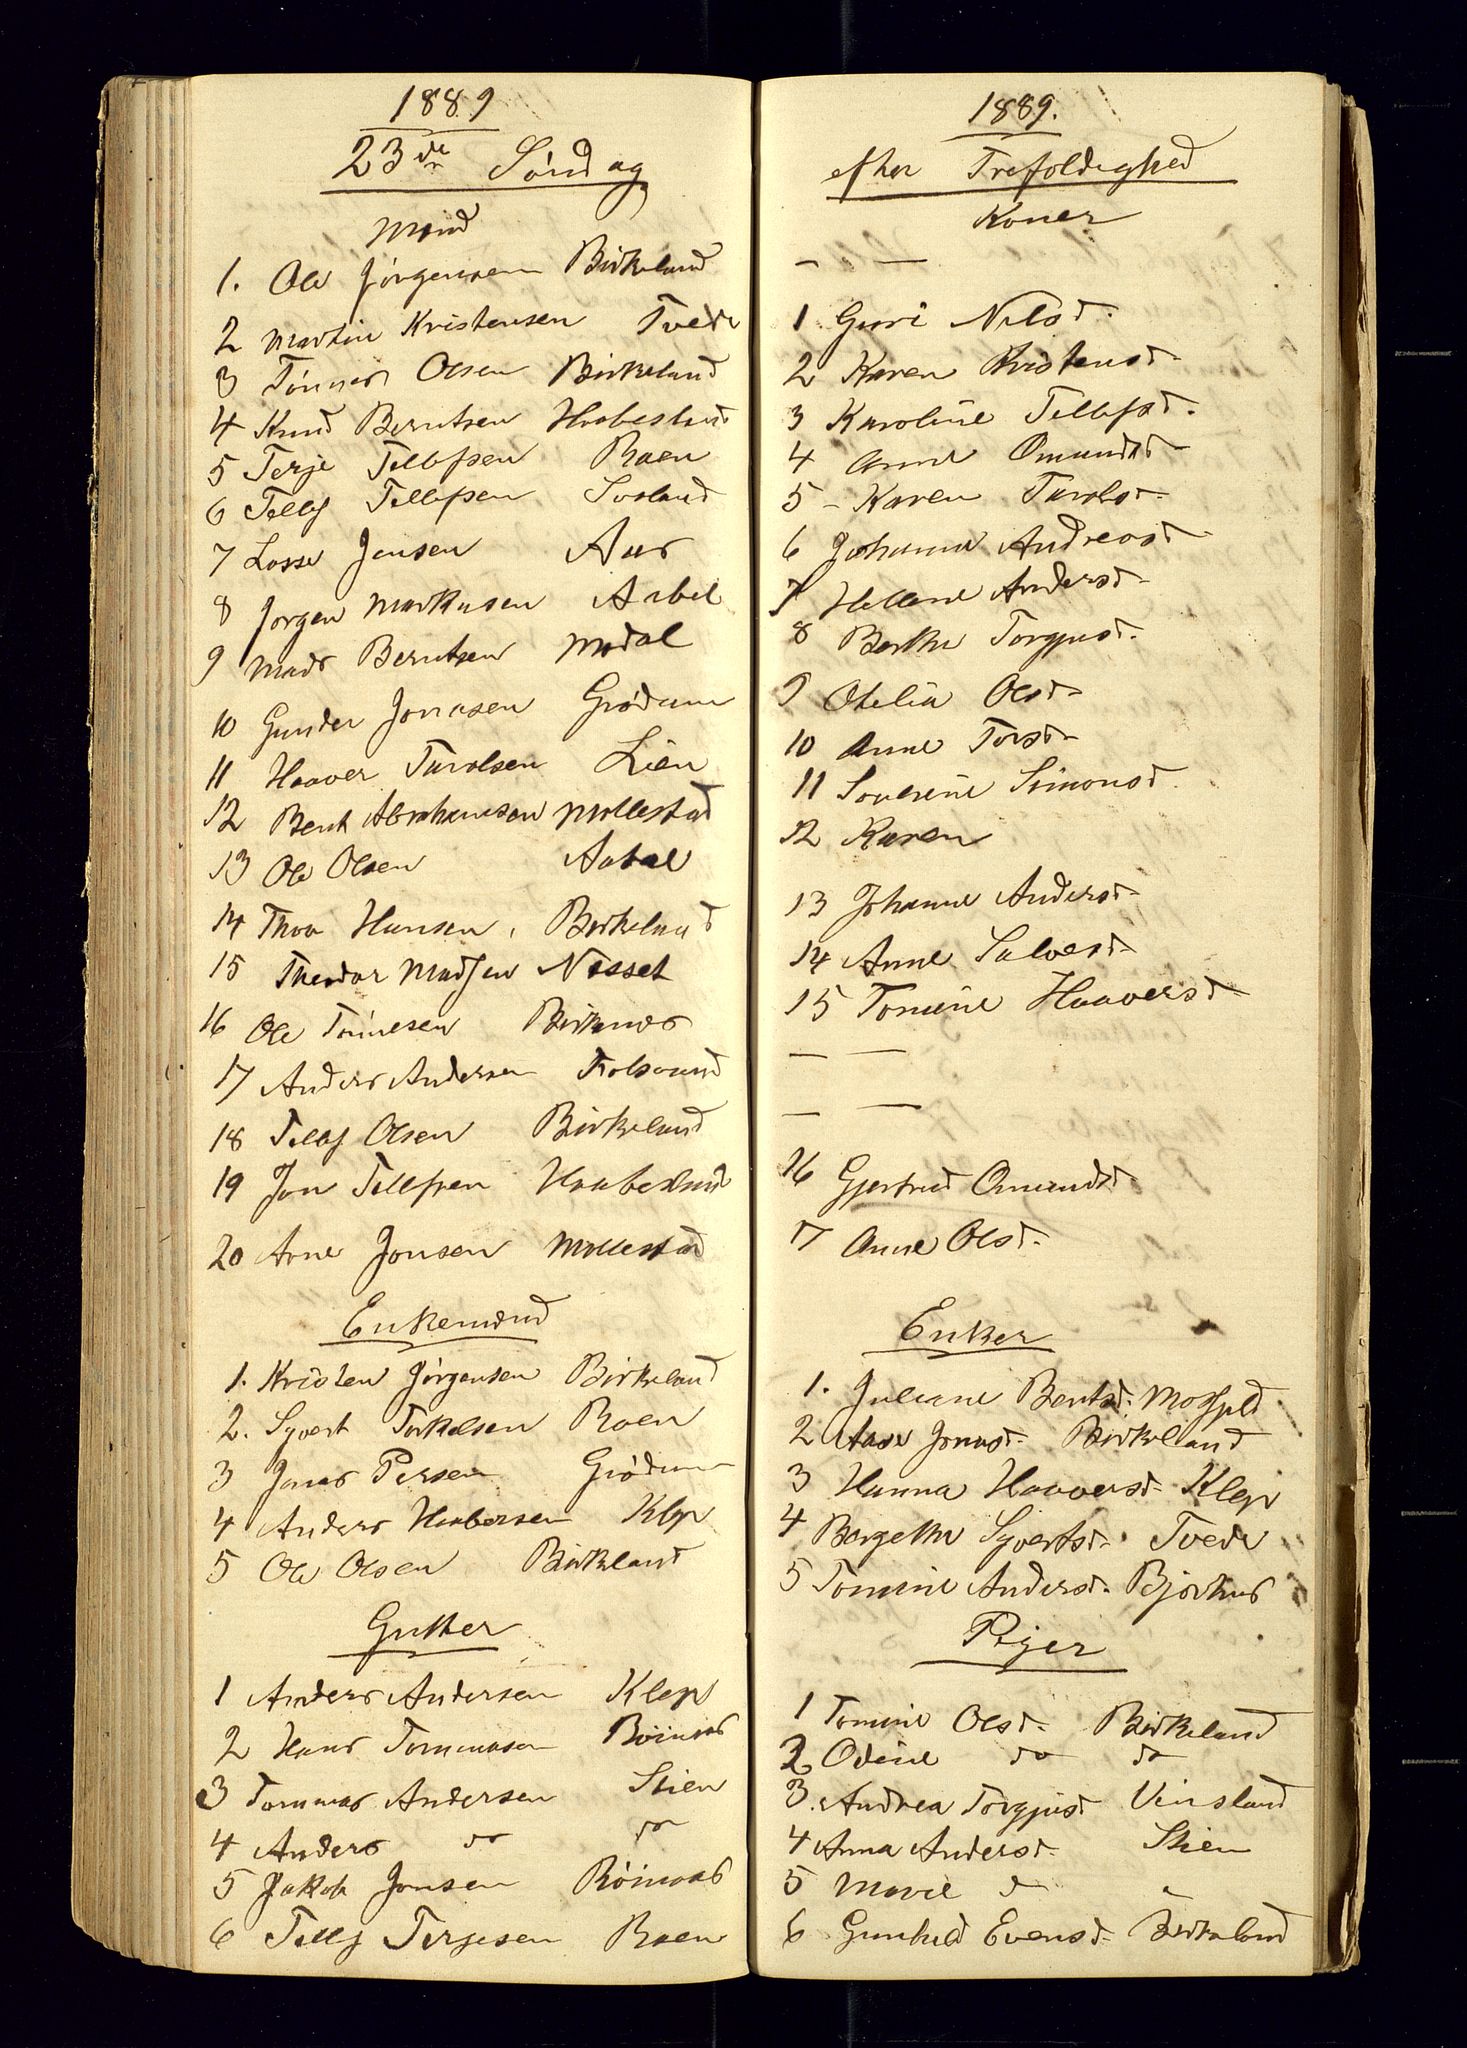 1889
23de Søndag
Mænd
1. Ole Jørgensen Birkeland
2 Martin Kristensen Tvede
3 Tønnes Olsen Birkeland
4 Knud Berntsen Haabesland
5 Terje Tellefsen Roen
6 Tellef Tellefsen Sosland
7 Lasse Jensen Aas
8 Jørgen Markusen Aabel
9 Mads Berntsen Modal
10 Gunder Jonasen Grødum
11 Haaver Tarolsen Lien
12 Bent Abrahamsen Mollestad
13 Ole Olsen Aabel
14 Thor Hansen, Birkeland
15 Theodor Madsen Nesset
16 Ole Tønnesen
17 Anders Andersen
18 Tellef Olsen Birkeland
19 Jon Tellefsen Haabesland
20 Arne Jonsen Mollestad
Enkemænd
1. Kristen Jørgensen Birkeland
2. Syvert Torkelsen Roen
3 Jonas Persen Grødum
4 Anders Haabersen Klep
5 Ole Olsen Birkeland
Gutter
1 Anders Andersen Klep
2 Hans Tommasen Røinaas
3 Tommas Andersen Stien
4 Anders do do
5 Jakob Jonsen Røinaas
6 Tellef Terjesen Roen
1889.
efter Trefoldighed
Koner
— —
1 Guri Nilsd.
2 Karen Kristensd.
3 Karoline Tellefsd.
4 Anne Omundsd.
5 - Karen Tarolsd.
6 Johanne Andreasd.
7 Hellene Andersd.
8 Berthe Torgjusd.
9 Otelia Olsd.
10 Anne Torsd.
11 Severine Simonsd.
12 Karen
13 Johanne Andersd.
14 Anne Salvesd.
15 Tomine Haaversd.
— —
— —
16 Gjertrud Omundsd.
17 Anne Olsd.
Enker
1. Juliane Bentsd. Mosfjeld
2 Aase Jonasd. Birkeland
3 Hanna Haaversd. Klep
4 Bergethe Syvertsd. Tvede
5 Tomine Andersd.
Piger
1 Tomine Olsd. Birkeland
2 Odine do do
3. Andrea Torgjusd. Vinsland
4 Anna Andersd. Stien
5 Marie do "
6 Gunhild Evensd. Birkeland